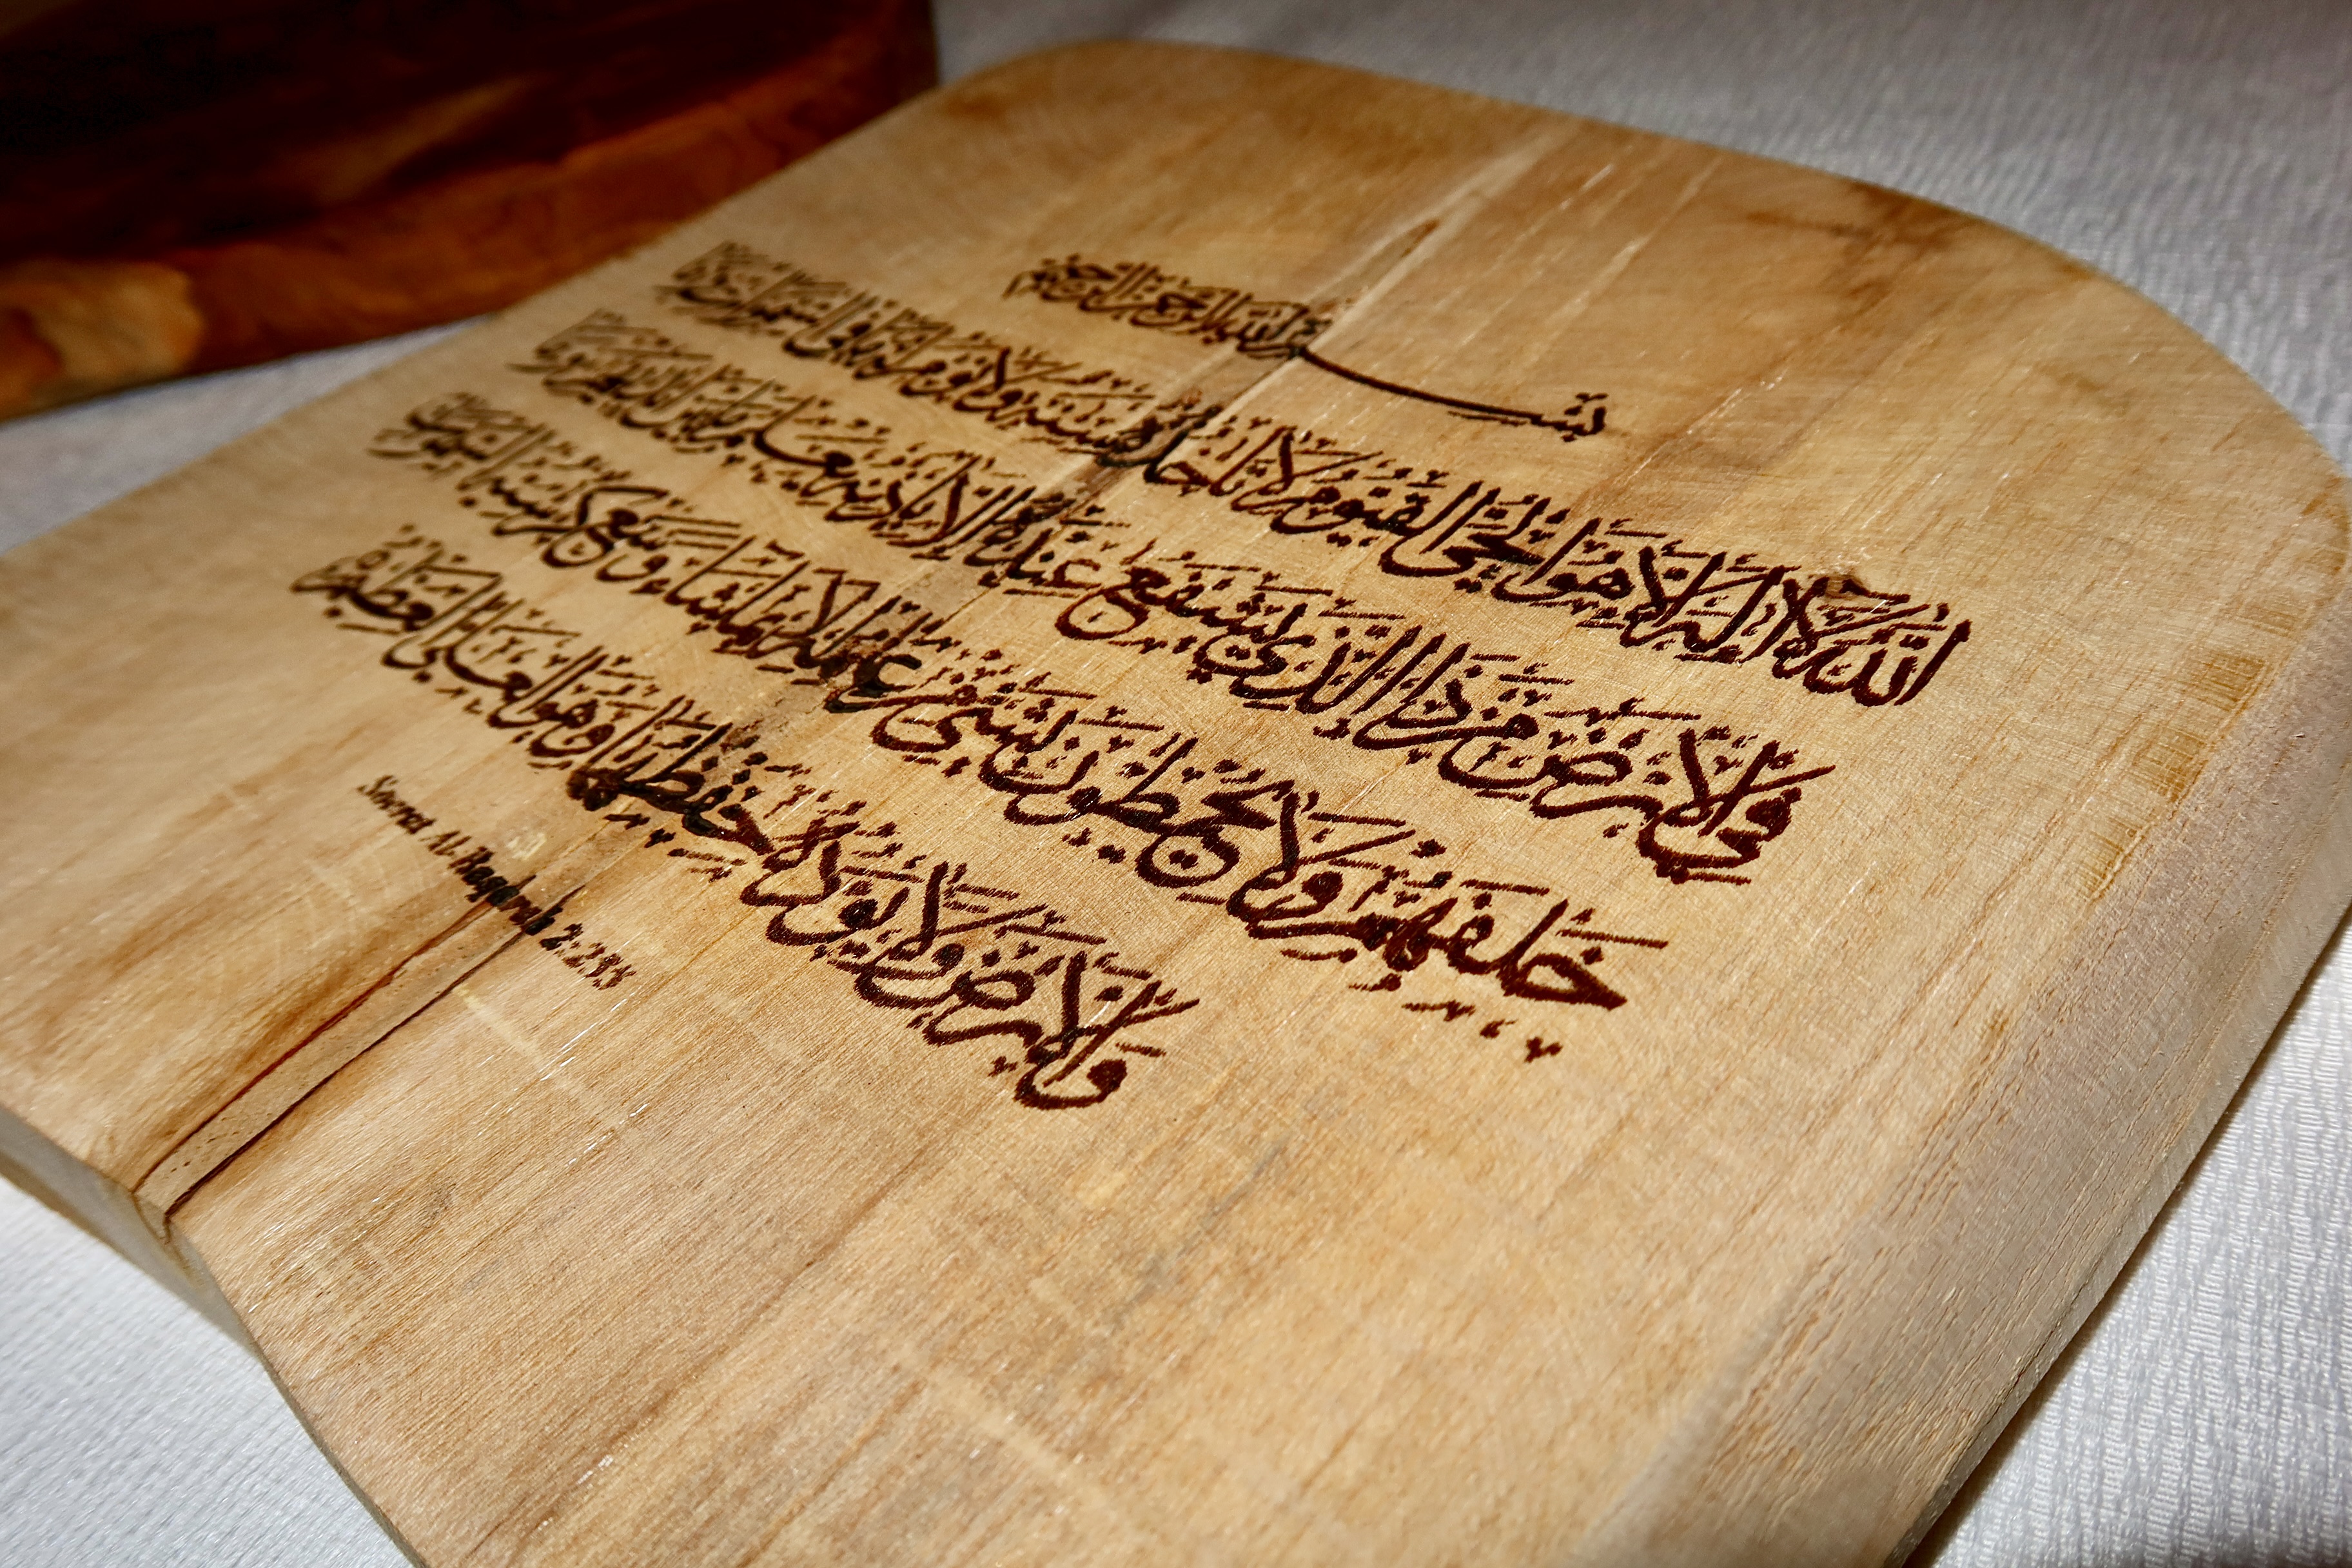 بِسْمِ اللَّهِ الرَّحْمَٰنِ الرَّحِيمِ
اللَّهُ لَا إِلَٰهَ إِلَّا هُوَ الْحَيُّ الْقَيُّومُ لَا تَأْخُذُهُ سِنَةٌ وَلَا نَوْمٌ لَهُ مَا فِي السَّمَٰوَٰتِ وَمَا
فِي الْأَرْضِ مَنْ ذَا الَّذِي يَشْفَعُ عِنْدَهُ إِلَّا بِإِذْنِهِ يَعْلَمُ مَا بَيْنَ أَيْدِيهِمْ وَمَا
خَلْفَهُمْ وَلَا يُحِيطُونَ بِشَيْءٍ مِنْ عِلْمِهِ إِلَّا بِمَا شَاءَ وَسِعَ كُرْسِيُّهُ السَّمَٰوَٰتِ
وَالْأَرْضَ وَلَا يَئُودُهُ حِفْظُهُمَا وَهُوَ الْعَلِيُّ الْعَظِيمُ
Soorat Al-Baqarah 2:255